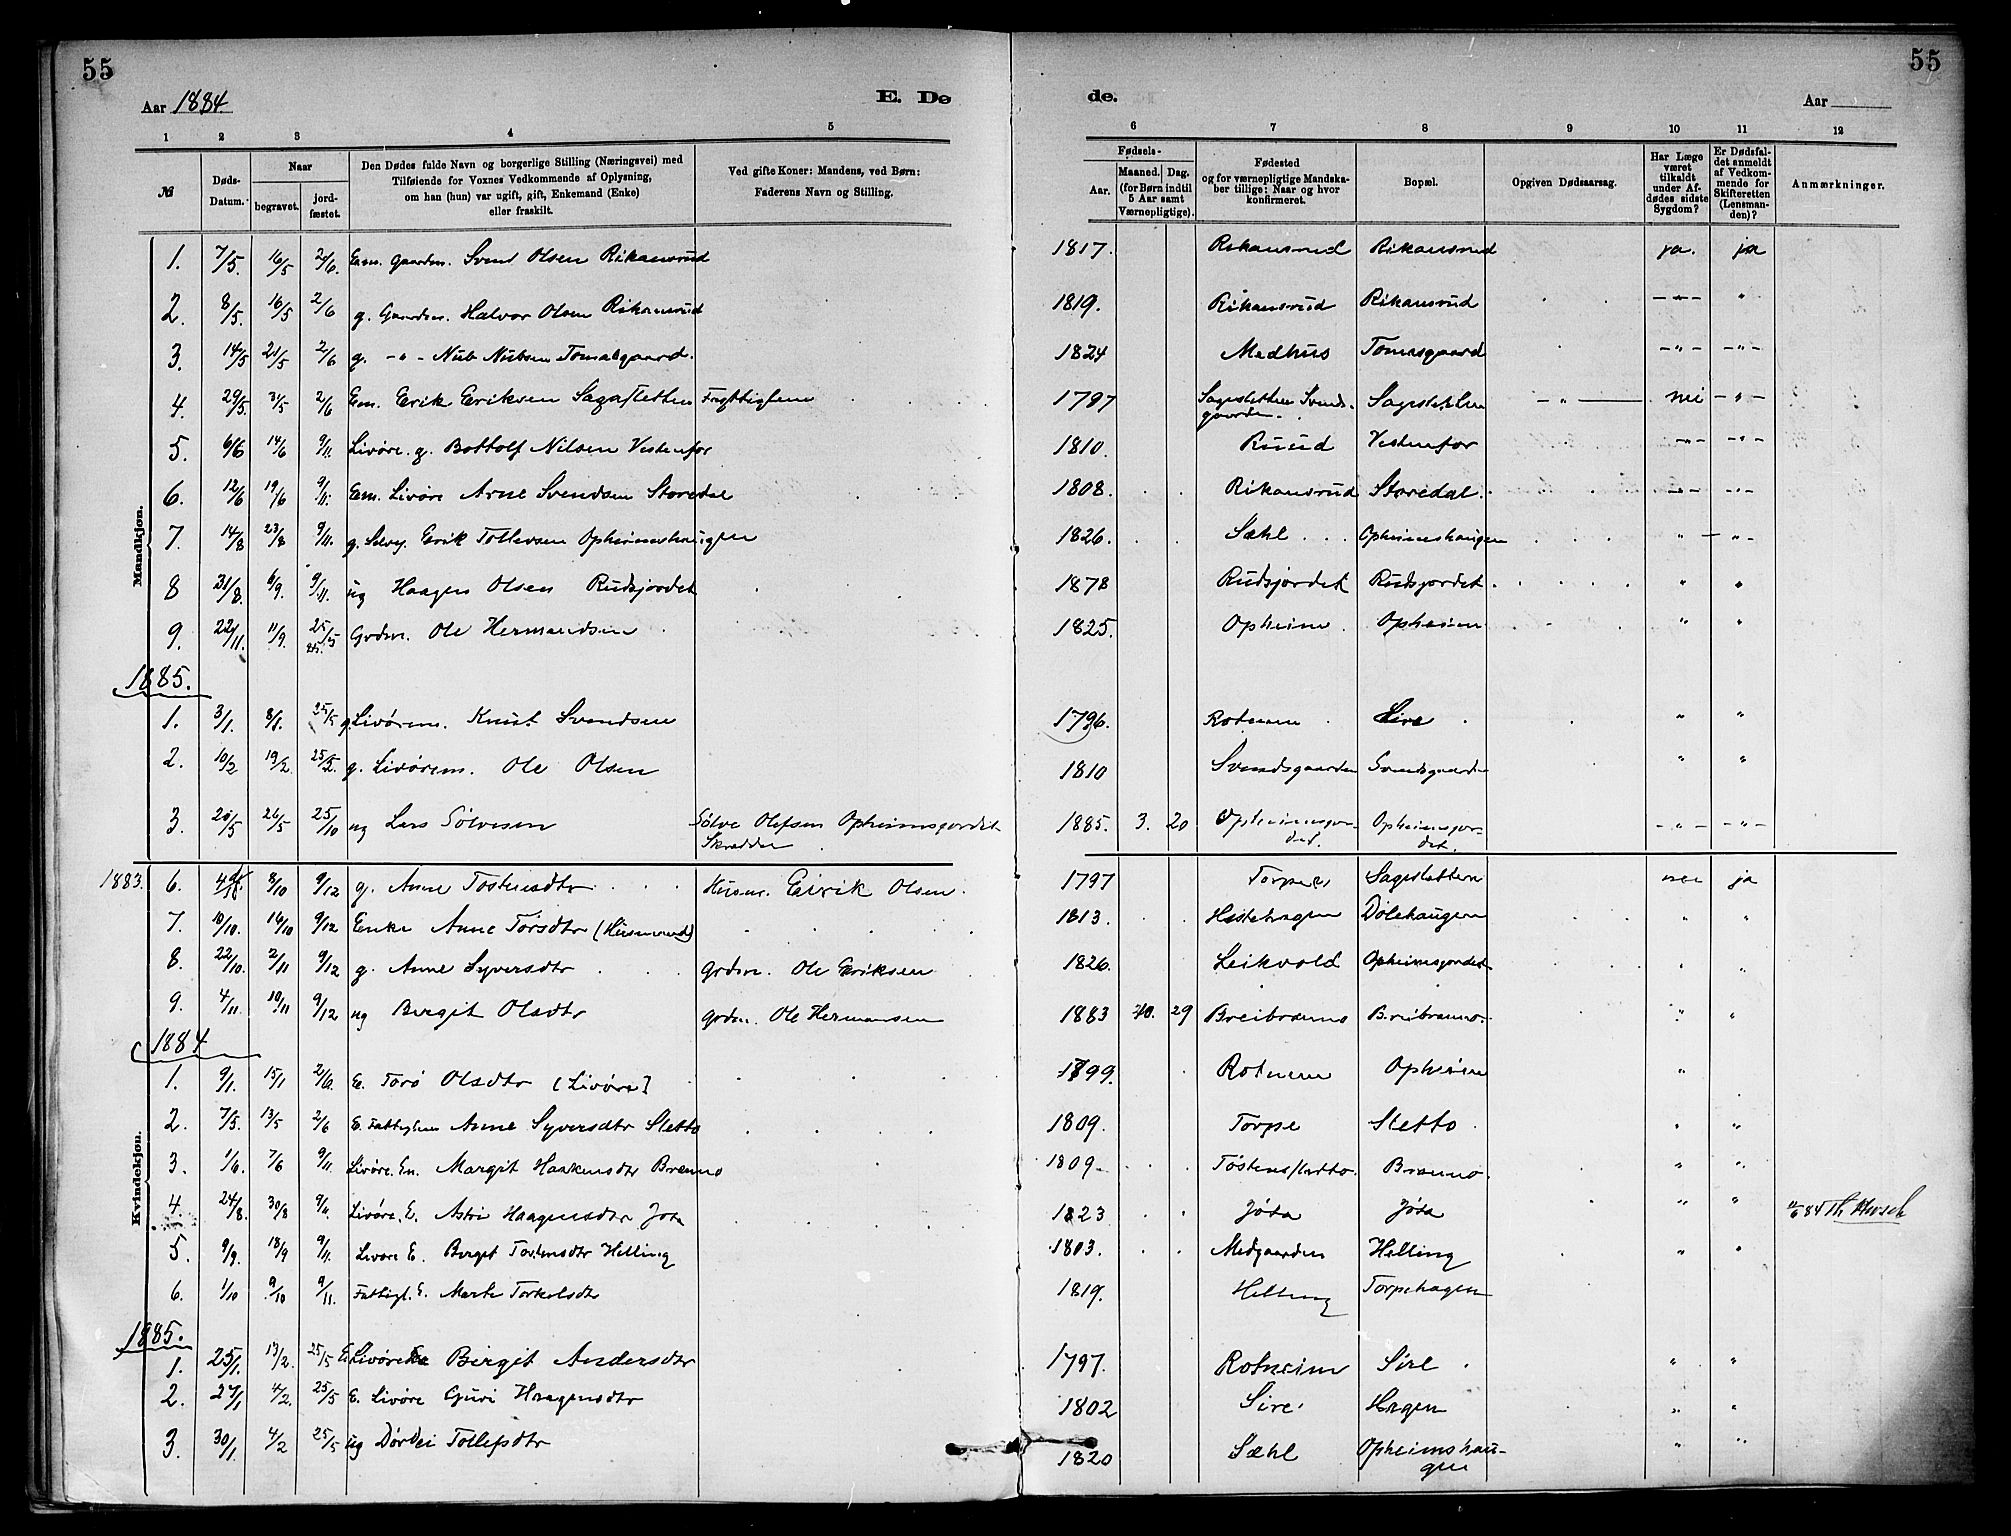 55
55
Aar 1884
E. De
de.
Aar
1 2 3 4 5 6 7 8 9 10 11 12
№
Døds-Datum.
Naar
begravet.
jord-fæstet.
Den Dødes fulde Navn og borgerlige Stilling (Næringsvei) med
Tilføiende for Voxnes Vedkommende af Oplysning,
om han (hun) var ugift, gift, Enkemand (Enke)
eller fraskilt.
Ved gifte Koner: Mandens, ved Børn:
Faderens Navn og Stilling.
Fødsels-
Aar.
Maaned. Dag.
(for Børn indtil
5 Aar samt
Værnepligtige).
Fødested
og for værnepligtige Mandska-
ber tillige: Naar og hvor
konfirmeret.
Bopæl.
Opgiven Dødsaarsag.
Har Læge
været
tilkaldt
under Af-
dødes sidste
Sygdom?
Er Dødsfal-
det anmeldt
af Vedkom-
mende for
Skifteretten
(Lensman-
den)?
Anmærkninger.
Mandkjøn.
1. 7/5. 16/5 2/6. Em. Gaardm. Svend Olsen Rikansrud 1817. Rikansrud Rikansrud ja. ja
2. 8/5. 16/5 2/6 g. Gaardm. Halvor Olsen Rikansrud 1819. Rikansrud Rikansrud -"- "
3. 14/5 21/5 2/6 g. -"- Nub Nubsen Tomasgaard. 1824 Medhus Tomasgaard -"- -"-
4. 29/5. 31/5 2/6 Em. Erik Eriksen Sagasletten Fattiglem 1787 Sagesletten Svends-
gaarden. Sagesletten -"- nei -"-
5. 6/6 14/6 9/11. Livøre. g. Bottolf Nilsen Vestenfor 1810. Ruud Vestenfor -"- -"-
6. 12/6 19/6 9/11. Em. Livøre Arne Svendsen Storedal 1808. Rikansrud Storedal. -"- -"-
7. 14/8 23/8 9/11. g. Selvej. Erik Tollevsen Opheimshaugen 1826. Sæhl Opheimshaugen " -"-
8 31/8. 6/9. 9/11. ug Haagen Olsen Rudsjordet 1878 Rudsjordet Rudsjordet. " "
9. 22/11. 11/9. 25/5 85. Grdm. Ole Hermandsen 1825. Opheim Opheim " "
1885.
1. 3/1. 8/1. 25/5 g. Livørem. Knut Svendsen 1796. Rotnem Sire " "
2. 10/2 19/2. 25/5. g. Livørem. Ole Olsen 1810 Svendsgaarden Svendsgaarden " "
3. 20/5 26/5 25/10 ug Lars Sølvesen Sølve Olefsen Opheimsjordet
Skrædder 1885. 3. 20 Opheimsjor-
det. Opheimsjor-
det. -"- -"-
Kvindekjøn.
1883. 6. 8/10 9/12 g. Anne Tostensdtr Husm. Eirik Olsen. 1797 Torpe Sagesletten nei ja
7. 10/10. 16/10 9/12 Enke Anne Torsdtr (Husmand) 1813. Hestehagen Dølehaugen " "
8. 22/10. 2/11 9/12 g. Anne Syversdtr Grdm. Ole Eriksen 1826. Leikvold Opheimsjordet " "
9. 4/11. 10/11 9/12 ug Bergit Olsdtr Grdm. Ole Hermansen 1883 10. 29 Breibrænno Breibrænno. " "
1884
1. 9/1. 15/1 2/6. E. Torø Olsdtr (Livøre) 1799. Rotnem Opheim "
2. 7/5. 13/5 2/6 E. Fattiglem Anne Syversdtr Sletto 1809. Torpe Sletto " "
3. 1/6. 7/6 9/11. Livøre. En. Margit Haakensdtr Brænno 1809 Tøstensletto. Brænno. " "
4. 24/8. 30/8 9/11. Livøre. E. Astri Haagensdtr Jøta 1823 Jøta Jøta " "
5. 9/9. 18/9 9/11. Livøre E. Berget Tostensdtr Helling 1803. Medgaarden Helling " "
6. 1/10 9/10 9/11. Fattigl. E. Marte Torkelsdtr 1819. Helling Torpehagen " "
1885.
1. 25/1. 13/2. 25/5 E. Livøre Birgit Andersdtr 1797. Rotneim Sire. " "
2. 27/1 4/2. 25/5 E. Livøre Guri Haagensdtr 1802 Sire. Hagen " "
3. 30/1. 4/2 25/5 ug Dordei Tollefsdtr 1820 Sæhl Opheimshau-
gen " "